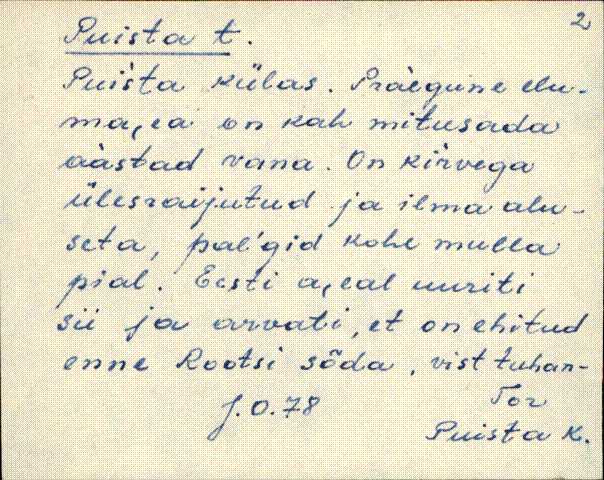 2
Puista t.
Puista külas. Præegune elu-
ma,ea on kah mitusada
aàstad vana. On kirvega
ülesraijutud ja ilma alu-
seta, pal'gid kohe mulla
pial. Eesti a,eal uuriti
sii ja arvati, et on ehitud
enne Rootsi sõda, vist tuhan-
J.O.78 Tor
Puista K.